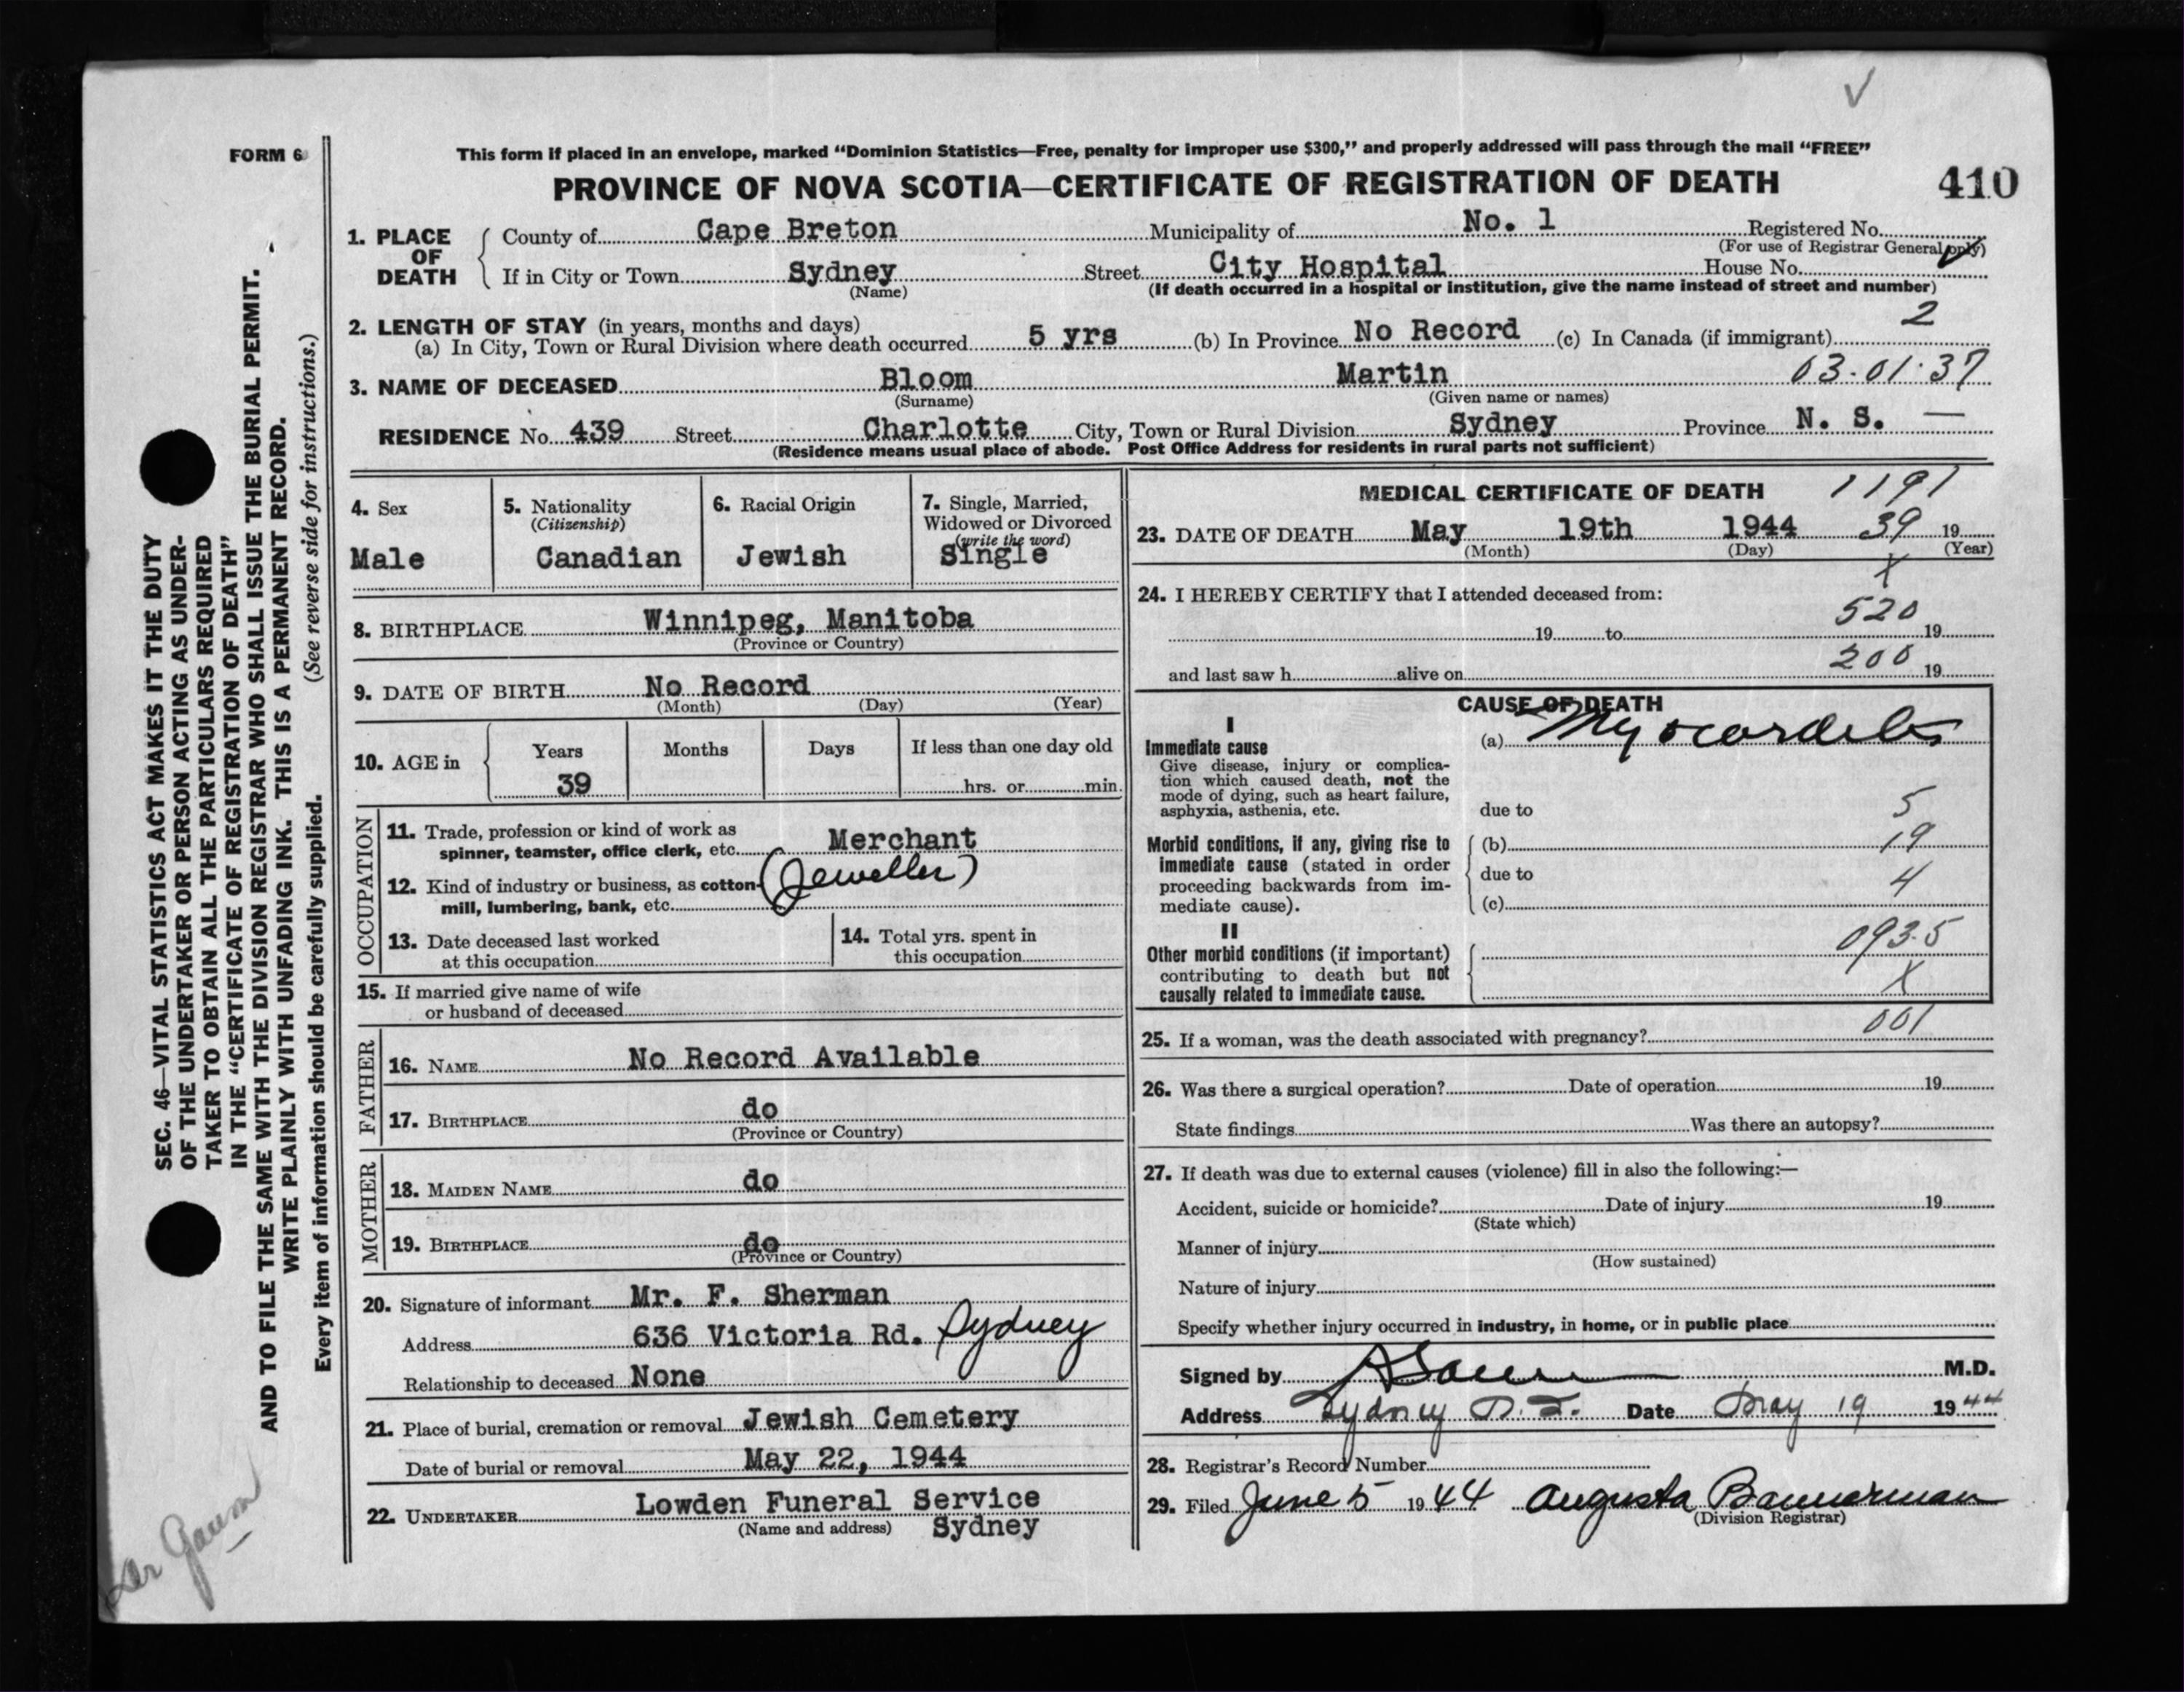 FORM 6
This form if placed in an envelope, marked “Dominion Statistics—Free, penalty for improper use $300,” and properly addressed will pass through the mail “FREE”
PROVINCE OF NOVA SCOTIA—CERTIFICATE OF REGISTRATION OF DEATH
410
1. PLACE OF DEATH
County of Cape Breton Municipality of No. 1 Registered No.
(For use of Registrar General only)
If in City or Town Sydney Street City Hospital House No.
(Name) (If death occurred in a hospital or institution, give the name instead of street and number)
2. LENGTH OF STAY (in years, months and days) 2
(a) In City, Town or Rural Division where death occurred 5 yrs (b) In Province No Record (c) In Canada (if immigrant)
3. NAME OF DECEASED Bloom Martin 03-01-37
(Surname) (Given name or names)
RESIDENCE No. 439 Street Charlotte City, Town or Rural Division Sydney Province N. S. —
(Residence means usual place of abode. Post Office Address for residents in rural parts not sufficient)
4. Sex
Male
5. Nationality
(Citizenship)
Canadian
6. Racial Origin
Jewish
7. Single, Married,
Widowed or Divorced
(write the word)
Single
8. BIRTHPLACE Winnipeg, Manitoba
(Province or Country)
9. DATE OF BIRTH No Record
(Month) (Day) (Year)
10. AGE in
Years Months Days If less than one day old
39 hrs. or min.
OCCUPATION
11. Trade, profession or kind of work as
spinner, teamster, office clerk, etc. Merchant
12. Kind of industry or business, as cotton- (Jeweller)
mill, lumbering, bank, etc.
13. Date deceased last worked
at this occupation
14. Total yrs. spent in
this occupation
15. If married give name of wife
or husband of deceased
FATHER
16. NAME No Record Available
17. BIRTHPLACE do
(Province or Country)
MOTHER
18. MAIDEN NAME do
19. BIRTHPLACE do
(Province or Country)
20. Signature of informant Mr. F. Sherman
Address 636 Victoria Rd. Sydney
Relationship to deceased None
21. Place of burial, cremation or removal Jewish Cemetery
Date of burial or removal May 22, 1944
22. UNDERTAKER Lowden Funeral Service
(Name and address) Sydney
MEDICAL CERTIFICATE OF DEATH 1191
23. DATE OF DEATH May 19th 1944 39 19
(Month) (Day) (Year)
X
24. I HEREBY CERTIFY that I attended deceased from:
520
19 to 19
200
and last saw h alive on 19
CAUSE OF DEATH
I
Immediate cause
Give disease, injury or complica-
tion which caused death, not the
mode of dying, such as heart failure,
asphyxia, asthenia, etc.
(a) Myocardites
due to 5
Morbid conditions, if any, giving rise to
immediate cause (stated in order
proceeding backwards from im-
mediate cause).
(b) 19
due to 4
(c)
II
Other morbid conditions (if important)
contributing to death but not
causally related to immediate cause.
093.5
X
25. If a woman, was the death associated with pregnancy? 001
26. Was there a surgical operation? Date of operation 19
State findings Was there an autopsy?
27. If death was due to external causes (violence) fill in also the following:—
Accident, suicide or homicide? Date of injury 19
(State which)
Manner of injury
(How sustained)
Nature of injury
Specify whether injury occurred in industry, in home, or in public place
Signed by M.D.
Address Sydney N.S. Date May 19 1944
28. Registrar's Record Number
29. Filed June 5 1944 Augusta Bannerman
(Division Registrar)
SEC. 46—VITAL STATISTICS ACT MAKES IT THE DUTY
OF THE UNDERTAKER OR PERSON ACTING AS UNDER-
TAKER TO OBTAIN ALL THE PARTICULARS REQUIRED
IN THE “CERTIFICATE OF REGISTRATION OF DEATH”
AND TO FILE THE SAME WITH THE DIVISION REGISTRAR WHO SHALL ISSUE THE BURIAL PERMIT.
WRITE PLAINLY WITH UNFADING INK. THIS IS A PERMANENT RECORD.
(See reverse side for instructions.)
Every item of information should be carefully supplied.